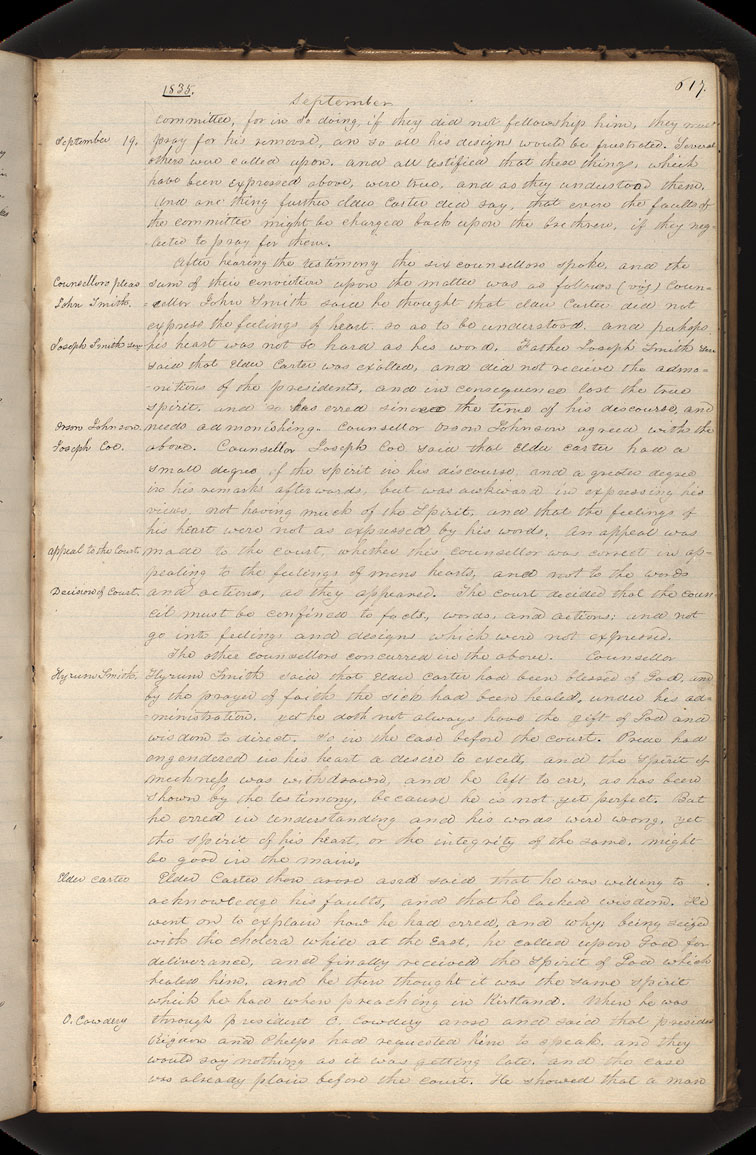 1835.
617.
September
committee, for in so doing, if they did not fellowship him, they must
September 19. pray for his removal, an so all his designs would be frustrated. Several
others were called upon, and all testified that these things, which
have been expressed above, were true, and as they understood them.
And one thing further elder Carter did say, that even the faults of
the committee might be charged back upon the brethren, if they neg-
lected to pray for them.
After hearing the testimony the six counsellors spoke, and the
Counsellors pleas sum of their conviction upon the matter was as follows (viz) Coun-
John Smith. -sellor John Smith said he thought that elder Carter did not
express the feelings of heart, so as to be understood, and perhaps,
Joseph Smith sen his heart was not so hard as his word. Father Joseph Smith Sen
said that Elder Carter was exalted, and did not recieve the admo-
-nitions of the presidents, and in consequence lost the true
spirit, and so has erred since the time of his descourse, and
Orson Johnson. needs admonishing. Counsellor Orson Johnson agreed with the
Joseph Coe. above. Counsellor Joseph Coe said that Elder Carter had a
small degree of the spirit in his discourse, and a greater degree
in his remarks afterwards, but was awkward in expressing his
views, not having much of the Spirit, and that the feelings of
his heart were not as expressed by his words. An appeal was
appeal to the Court, made to the court, whether this counsellor was correct in ap-
pealing to the feelings of mens hearts, and not to the words
Decision of Court. and actions, as they appeared. The court decided that the coun-
cil must be confined to facts, words, and actions; and not
go into feelings and designs which were not expressed.
The other counsellors concurred in the above. Counsellor
Hyrum Smith. Hyrum Smith said that Elder Carter had been blessed of God, and
by the prayer of faith the sick had been healed, under his ad-
ministration, yet he doth not always have the gift of God and
wisdom to direct. So in the case before the court. Pride had
engendered in his heart a desire to excell, and the spirit of
meekness was withdrawn, and he left to err, as has been
shown by the testimony, because he is not yet perfect. But
he erred in understanding and his words were wrong, yet
the spirit of his heart, or the integrity of the same, might
be good in the main.
Elder Carter Elder Carter then arose and said, that he was willing to
acknowledge his faults, and that he lacked wisdom. He
went on to explain how he had erred, and why; being seized
with the cholera while at the East, he called upon God for
deliverance, and finally received the spirit of God which
healed him, and he then thought it was the same spirit
which he had when preaching in Kirtland. When he was
O. Cowdery through president O. Cowdery arose and said that presidents
Rigdon and Phelps had requested him to speak, and they
would say nothing as it was getting late, and the case
was already plain before the court. He showed that a man